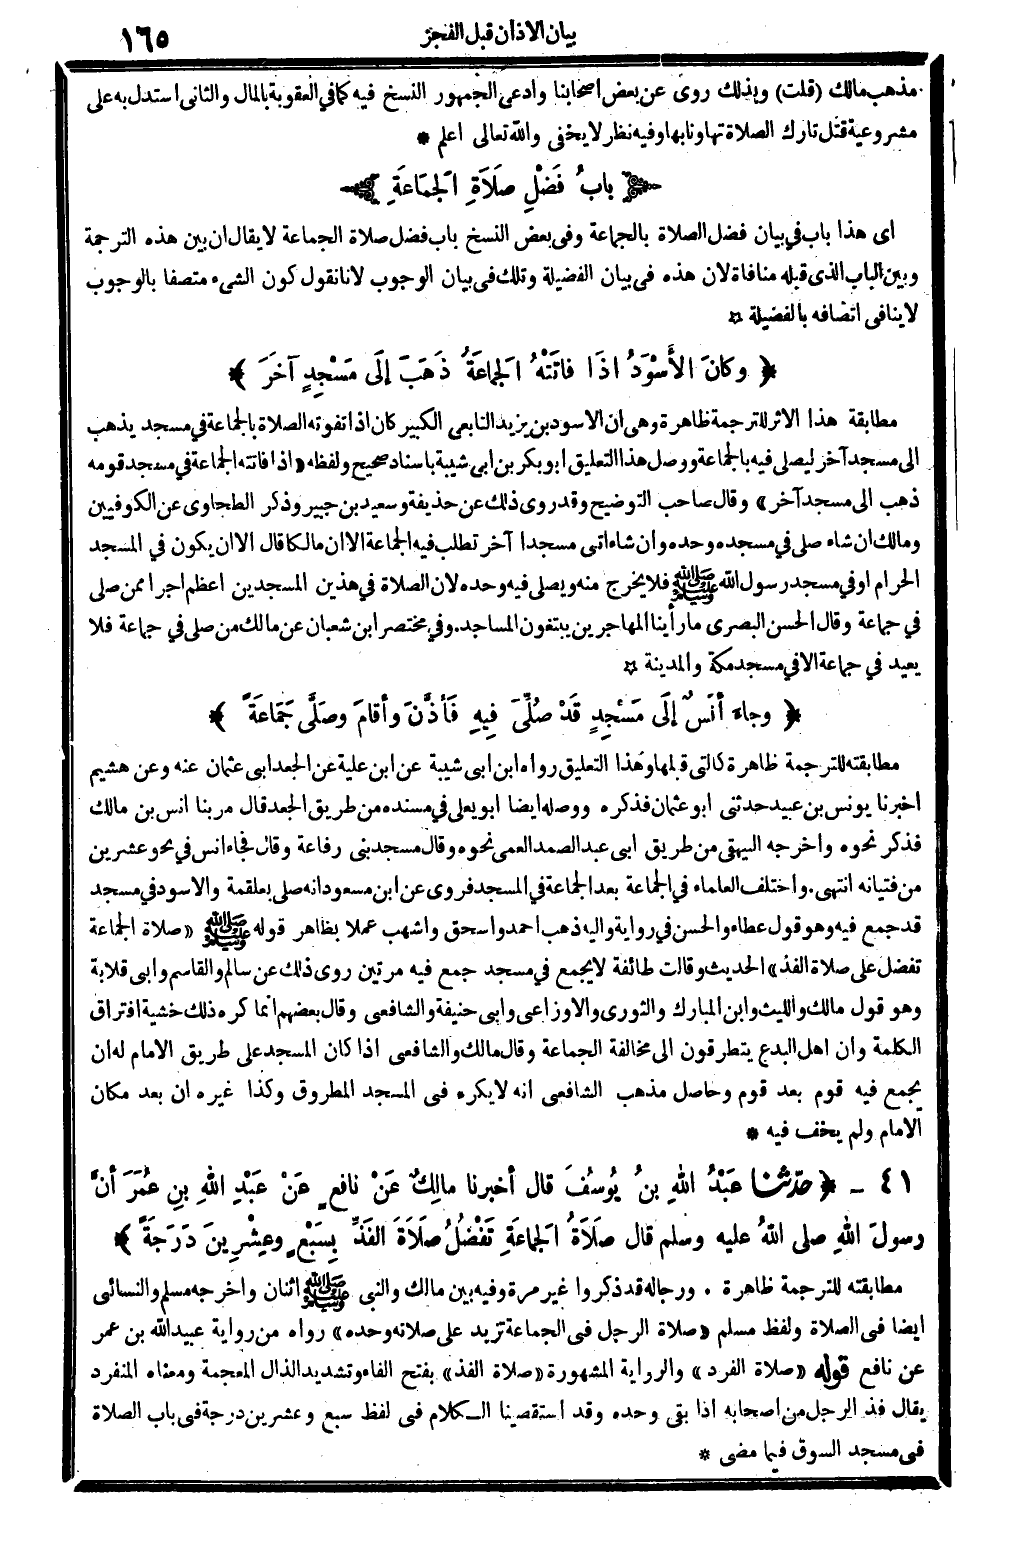 بيان الاذان قبل الفجر
١٦٥
مذهب مالك (قلت) وبذلك روى عن بعض اصحابنا وادعى الجمهور النسخ فيه كما في العقوبة بالمال والثانى استدل به على
مشروعية قتل تارك الصلاة تهاونا بها وفيه نظر لا يخفى والله تعالى اعلم *
باب فَضْلِ صَلَاةِ الْجَمَاعَةِ
اى هذا باب في بيان فضل الصلاة بالجماعة وفى بعض النسخ باب فضل صلاة الجماعة لا يقال ان بين هذه الترجمة
وبين الباب الذى قبله منافاة لان هذه فى بيان الفضيلة وتلك فى بيان الوجوب لانا نقول كون الشىء متصفا بالوجوب
لا ينافى اتصافه بالفضيلة ¤
﴿ وكانَ الأَسْوَدُ اذَا فاتَتْهُ الجَماعَةُ ذَهَبَ إلَى مَسْجِدٍ آخَرَ ﴾
مطابقة هذا الاثر للترجمة ظاهرة وهى ان الاسود بن يزيد التابعى الكبير كان اذا تفوته الصلاة بالجماعة في مسجد يذهب
الى مسجد آخر ليصلى فيه بالجماعة ووصل هذا التعليق ابو بكر بن ابى شيبة باسناد صحيح ولفظه «اذا فاتته الجماعة في مسجد قومه
ذهب الى مسجد آخر» وقال صاحب التوضيح وقد روى ذلك عن حذيفة وسعيد بن جبير وذكر الطحاوى عن الكوفيين
ومالك ان شاء صلى في مسجده وحده وان شاء اتى مسجدا آخر تطلب فيه الجماعة الا ان مالكا قال الا ان يكون في المسجد
الحرام او في مسجد رسول الله ﷺ فلا يخرج منه ويصلى فيه وحده لان الصلاة في هذين المسجدين اعظم اجرا ممن صلى
في جماعة وقال الحسن البصرى ما رأينا المهاجرين يبتغون المساجد. وفي مختصر ابن شعبان عن مالك من صلى في جماعة فلا
يعيد في جماعة الا في مسجد مكة والمدينة ¤
﴿ وجاءَ أنَسٌ إلَى مَسْجِدٍ قَدْ صُلِّىَ فِيهِ فَأذَّنَ وأقامَ وصَلَّى جَمَاعَةً ﴾
مطابقته للترجمة ظاهرة كالتى قبلها وهذا التعليق رواه ابن ابى شيبة عن ابن علية عن الجعد ابى عثمان عنه وعن هشيم
اخبرنا يونس بن عبيد حدثنى ابو عثمان فذكره ووصله ايضا ابو يعلى في مسنده من طريق الجعد قال مر بنا انس بن مالك
فذكر نحوه واخرجه البيهقى من طريق ابى عبد الصمد العمى نحوه وقال مسجد بنى رفاعة وقال فجاء انس في نحو عشرين
من فتيانه انتهى. واختلف العلماء في الجماعة بعد الجماعة في المسجد فروى عن ابن مسعود انه صلى بعلقمة والاسود في مسجد
قد جمع فيه وهو قول عطاء والحسن في رواية واليه ذهب احمد واسحق واشهب عملا بظاهر قوله ﷺ «صلاة الجماعة
تفضل على صلاة الفذ» الحديث وقالت طائفة لا يجمع في مسجد جمع فيه مرتين روى ذلك عن سالم والقاسم وابى قلابة
وهو قول مالك والليث وابن المبارك والثورى والاوزاعى وابى حنيفة والشافعى وقال بعضهم انما كره ذلك خشية افتراق
الكلمة وان اهل البدع يتطرقون الى مخالفة الجماعة وقال مالك والشافعى اذا كان المسجد على طريق الامام له ان
يجمع فيه قوم بعد قوم وحاصل مذهب الشافعى انه لا يكره فى المسجد المطروق وكذا غيره ان بعد مكان
الامام ولم يخف فيه *
٤١ - ﴿ حَدَّثَنَا عَبْدُ اللهِ بنُ يُوسُفَ قال أخبرنا مالِكٌ عَنْ نافِعٍ عَنْ عَبْدِ اللهِ بنِ عُمَرَ أنَّ
رسولَ اللهِ صلى اللهُ عليه وسلم قال صَلَاةُ الجَماعَةِ تَفْضُلُ صَلَاةَ الفَذِّ بِسَبْعٍ وعِشْرِينَ دَرَجَةً ﴾
مطابقته للترجمة ظاهرة . ورجاله قد ذكروا غير مرة وفيه بين مالك والنبى ﷺ اثنان واخرجه مسلم والنسائى
ايضا فى الصلاة ولفظ مسلم «صلاة الرجل فى الجماعة تزيد على صلاته وحده» رواه من رواية عبيد الله بن عمر
عن نافع قوله «صلاة الفرد» والرواية المشهورة «صلاة الفذ» بفتح الفاء وتشديد الذال المعجمة ومعناه المنفرد
يقال فذ الرجل من اصحابه اذا بقى وحده وقد استقصينا الكلام فى لفظ سبع وعشرين درجة فى باب الصلاة
فى مسجد السوق فيما مضى *